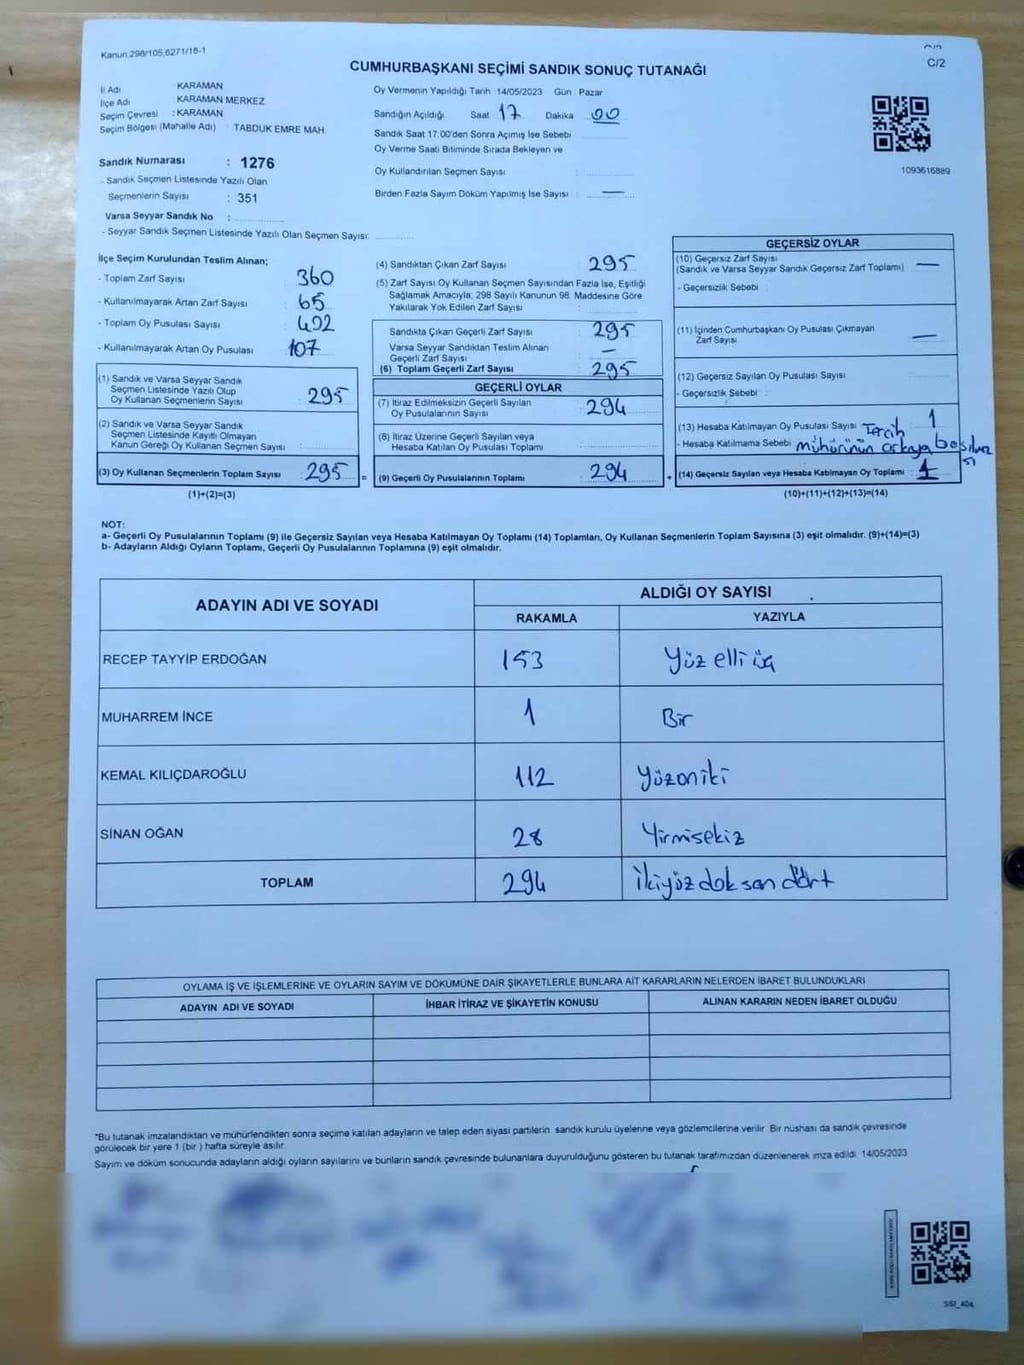 Kanun 298/105,6271/18-1
C/2
CUMHURBAŞKANI SEÇİMİ SANDIK SONUÇ TUTANAĞI
İl Adı KARAMAN
İlçe Adı KARAMAN MERKEZ
Seçim Çevresi : KARAMAN
Seçim Bölgesi (Mahalle Adı) : TABDUK EMRE MAH.
Sandık Numarası : 1276
- Sandık Seçmen Listesinde Yazılı Olan
Seçmenlerin Sayısı : 351
Varsa Seyyar Sandık No :
- Seyyar Sandık Seçmen Listesinde Yazılı Olan Seçmen Sayısı:
Oy Vermenin Yapıldığı Tarih 14/05/2023 Gün Pazar
Sandığın Açıldığı Saat 17 Dakika 00
Sandık Saat 17:00'den Sonra Açımış İse Sebebi
Oy Verme Saati Bitiminde Sırada Bekleyen ve
Oy Kullandırılan Seçmen Sayısı :
Birden Fazla Sayım Döküm Yapılmış İse Sayısı : —
1093616889
İlçe Seçim Kurulundan Teslim Alınan;
- Toplam Zarf Sayısı : 360
- Kullanılmayarak Artan Zarf Sayısı : 65
- Toplam Oy Pusulası Sayısı : 402
- Kullanılmayarak Artan Oy Pusulası : 107
(1) Sandık ve Varsa Seyyar Sandık
Seçmen Listesinde Yazılı Olup
Oy Kullanan Seçmenlerin Sayısı : 295
(2) Sandık ve Varsa Seyyar Sandık
Seçmen Listesinde Kayıtlı Olmayan
Kanun Gereği Oy Kullanan Seçmen Sayısı :
(3) Oy Kullanan Seçmenlerin Toplam Sayısı : 295
(1)+(2)=(3)
(4) Sandıktan Çıkan Zarf Sayısı : 295
(5) Zarf Sayısı Oy Kullanan Seçmen Sayısından Fazla İse, Eşitliği
Sağlamak Amacıyla; 298 Sayılı Kanunun 98. Maddesine Göre
Yakılarak Yok Edilen Zarf Sayısı :
Sandıkta Çıkan Geçerli Zarf Sayısı : 295
Varsa Seyyar Sandıktan Teslim Alınan
Geçerli Zarf Sayısı : —
(6) Toplam Geçerli Zarf Sayısı : 295
GEÇERLİ OYLAR
(7) İtiraz Edilmeksizin Geçerli Sayılan
Oy Pusulalarının Sayısı : 294
(8) İtiraz Üzerine Geçerli Sayılan veya
Hesaba Katılan Oy Pusulası Toplamı :
= (9) Geçerli Oy Pusulalarının Toplamı : 294
GEÇERSİZ OYLAR
(10) Geçersiz Zarf Sayısı
(Sandık ve Varsa Seyyar Sandık Geçersiz Zarf Toplamı) : —
- Geçersizlik Sebebi :
(11) İçinden Cumhurbaşkanı Oy Pusulası Çıkmayan
Zarf Sayısı : —
(12) Geçersiz Sayılan Oy Pusulası Sayısı :
- Geçersizlik Sebebi :
(13) Hesaba Katılmayan Oy Pusulası Sayısı : 1
- Hesaba Katılmama Sebebi : Tercih
mühürünün arkaya basılma
sı
+ (14) Geçersiz Sayılan veya Hesaba Katılmayan Oy Toplamı : 1
(10)+(11)+(12)+(13)=(14)
NOT:
a- Geçerli Oy Pusulalarının Toplamı (9) ile Geçersiz Sayılan veya Hesaba Katılmayan Oy Toplamı (14) Toplamları, Oy Kullanan Seçmenlerin Toplam Sayısına (3) eşit olmalıdır. (9)+(14)=(3)
b- Adayların Aldığı Oyların Toplamı, Geçerli Oy Pusulalarının Toplamına (9) eşit olmalıdır.
ADAYIN ADI VE SOYADI ALDIĞI OY SAYISI
RAKAMLA YAZIYLA
RECEP TAYYİP ERDOĞAN 153 Yüz elli üç
MUHARREM İNCE 1 Bir
KEMAL KILIÇDAROĞLU 112 Yüzoniki
SİNAN OĞAN 28 Yirmisekiz
TOPLAM 294 İkiyüz doksan dört
OYLAMA İŞ VE İŞLEMLERİNE VE OYLARIN SAYIM VE DÖKÜMÜNE DAİR ŞİKAYETLERLE BUNLARA AİT KARARLARIN NELERDEN İBARET BULUNDUKLARI
ADAYIN ADI VE SOYADI İHBAR İTİRAZ VE ŞİKAYETİN KONUSU ALINAN KARARIN NEDEN İBARET OLDUĞU
*Bu tutanak imzalandıktan ve mühürlendikten sonra seçime katılan adayların ve talep eden siyasi partilerin. sandık kurulu üyelerine veya gözlemcilerine verilir. Bir nüshası da sandık çevresinde
görülecek bir yere 1 (bir ) hafta süreyle asılır.
Sayım ve döküm sonucunda adayların aldığı oyların sayılarını ve bunların sandık çevresinde bulunanlara duyurulduğunu gösteren bu tutanak tarafımızdan düzenlenerek imza edildi. 14/05/2023
SSI_404